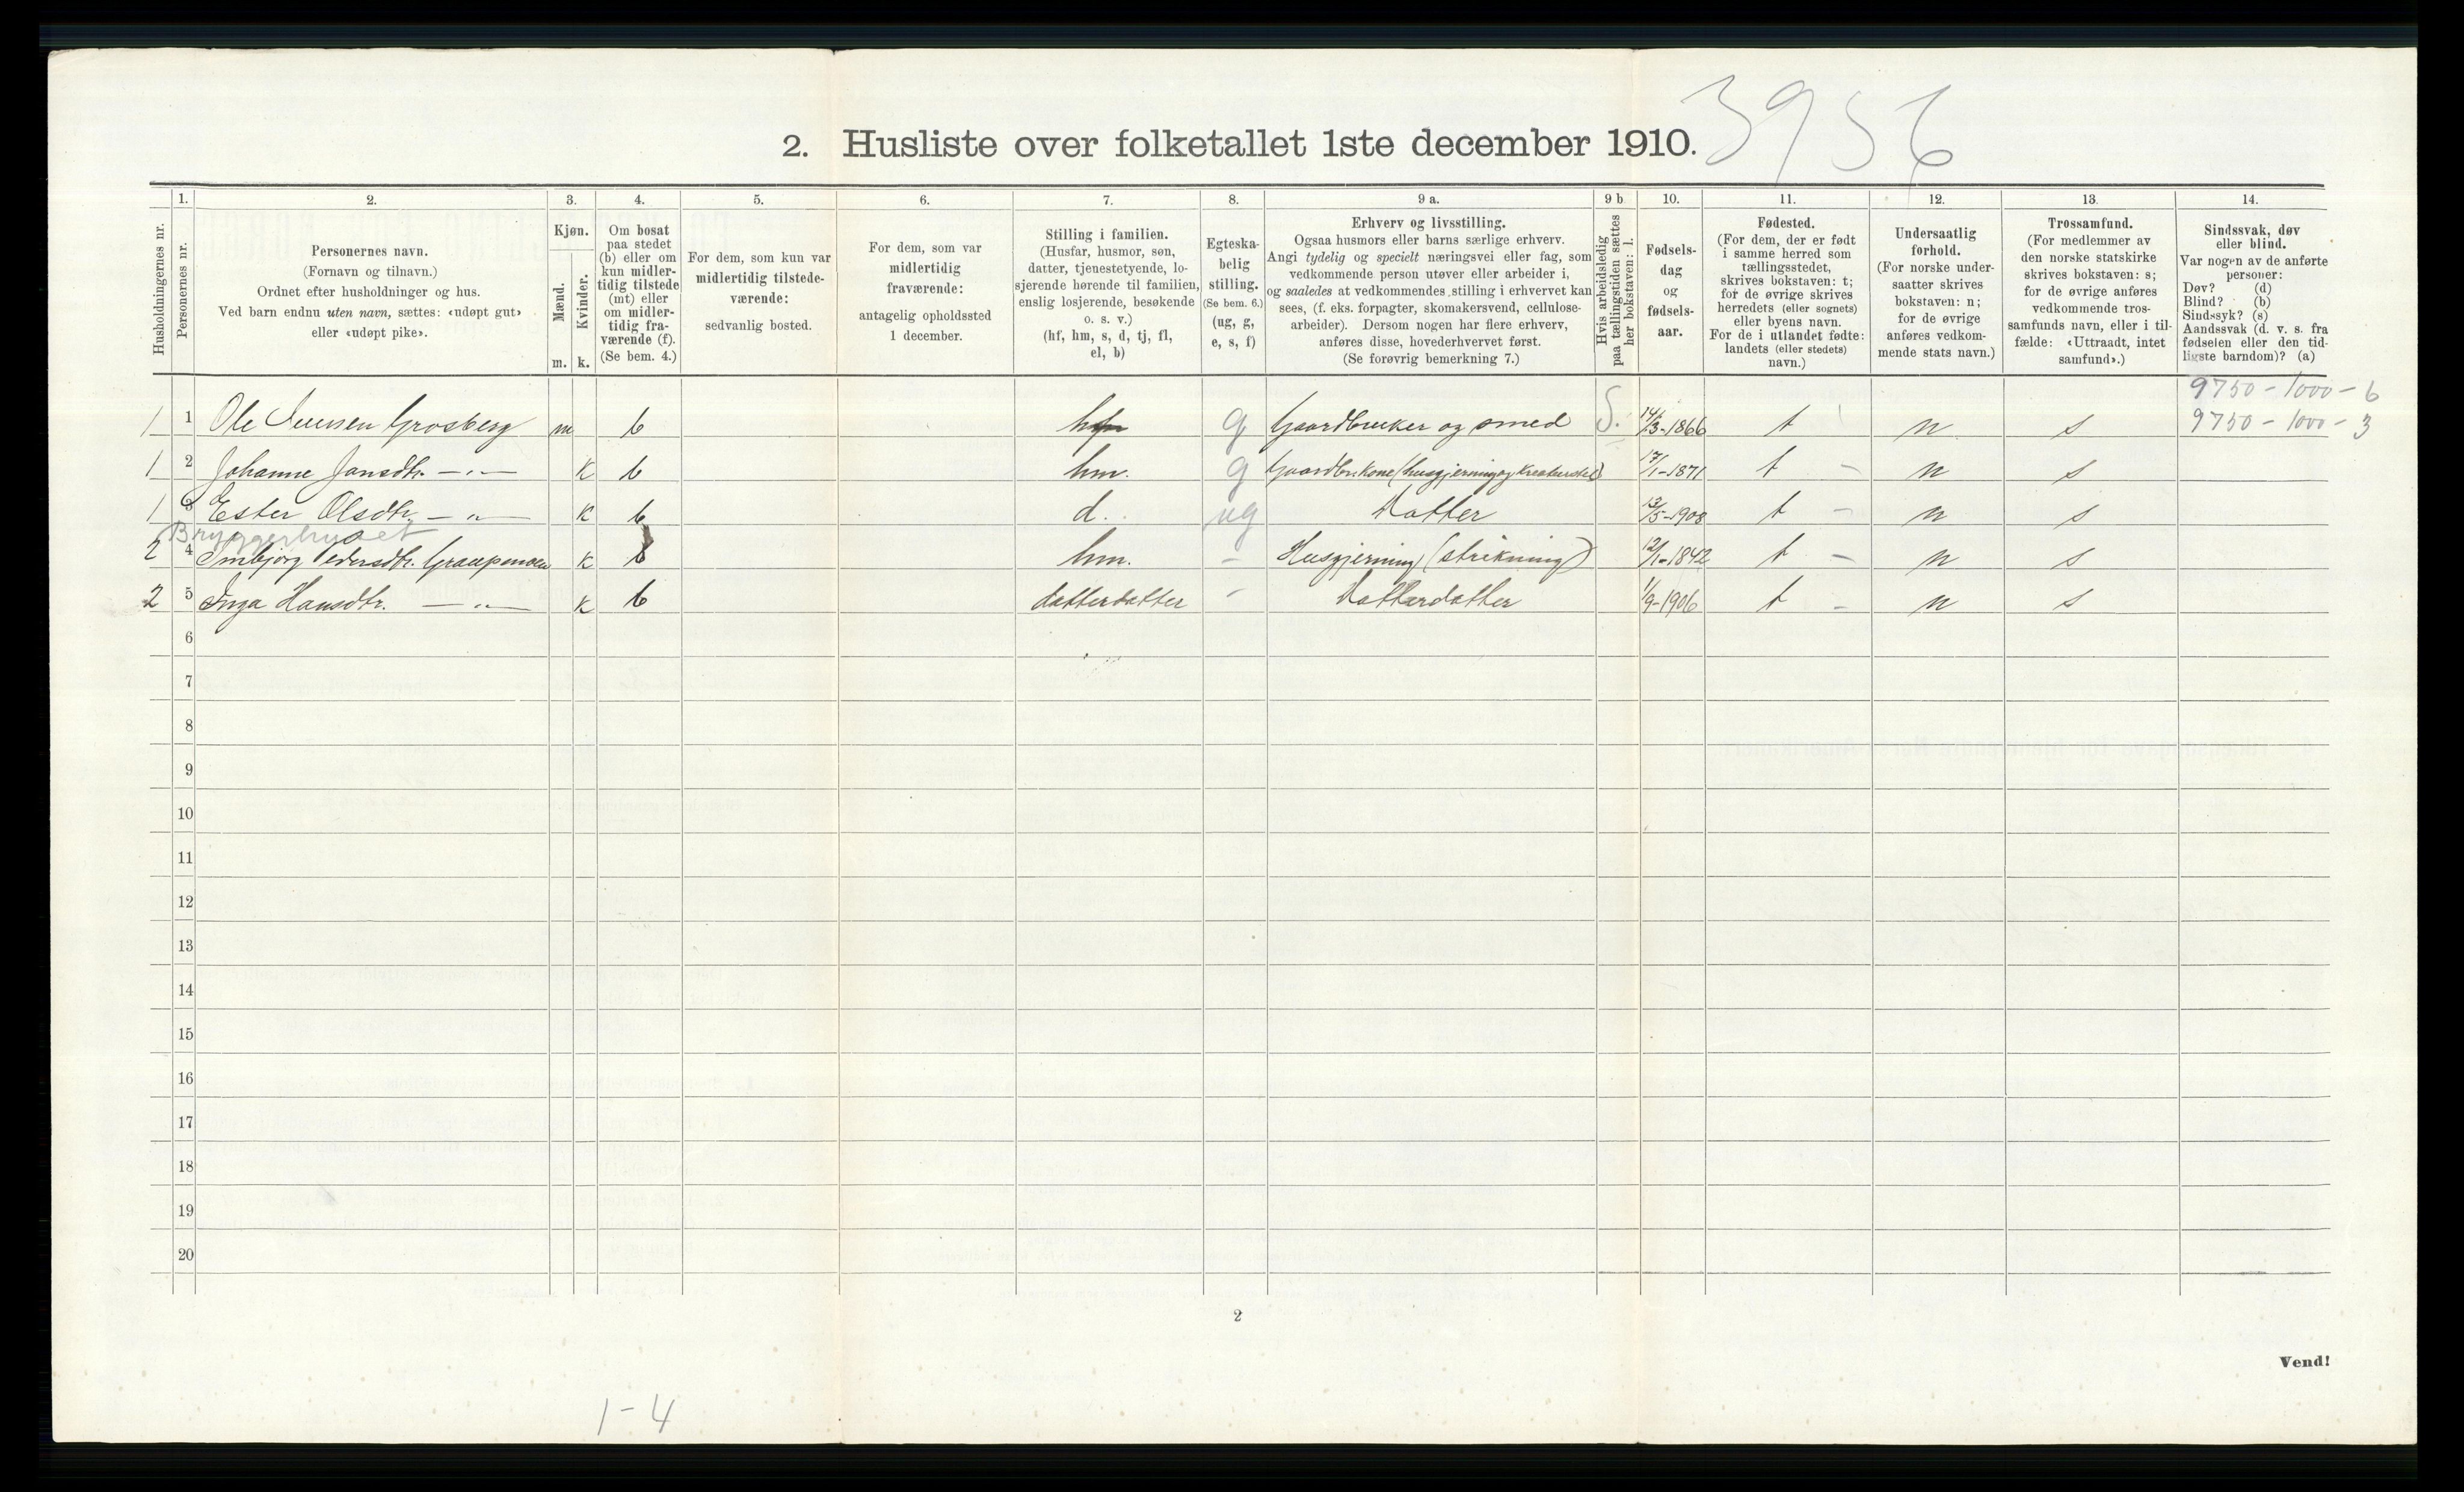 3956
2. Husliste over folketallet 1ste december 1910.
Husholdningernes nr.
1. Personernes nr.
2. Personernes navn.
(Fornavn og tilnavn.)
Ordnet efter husholdninger og hus.
Ved barn endnu uten navn, sættes: «udøpt gut»
eller «udøpt pike».
3. Kjøn.
Mænd. m.
Kvinder. k.
4. Om bosat
paa stedet
(b) eller om
kun midler-
tidig tilstede
(mt) eller
om midler-
tidig fra-
værende (f).
(Se bem. 4.)
5. For dem, som kun var
midlertidig tilstede-
værende:
sedvanlig bosted.
6. For dem, som var
midlertidig
fraværende:
antagelig opholdssted
1 december.
7. Stilling i familien.
(Husfar, husmor, søn,
datter, tjenestetyende, lo-
sjerende hørende til familien,
enslig losjerende, besøkende
o. s. v.)
(hf, hm, s, d, tj, fl,
el, b)
8. Egteska-
belig
stilling.
(Se bem. 6.)
(ug, g,
e, s, f)
9 a. Erhverv og livsstilling.
Ogsaa husmors eller barns særlige erhverv.
Angi tydelig og specielt næringsvei eller fag, som
vedkommende person utøver eller arbeider i,
og saaledes at vedkommendes stilling i erhvervet kan
sees, (f. eks. forpagter, skomakersvend, cellulose-
arbeider). Dersom nogen har flere erhverv,
anføres disse, hovederhvervet først.
(Se forøvrig bemerkning 7.)
9 b Hvis arbeidsledig
paa tællingstiden sættes
her bokstaven: l.
10. Fødsels-
dag
og
fødsels-
aar.
11. Fødested.
(For dem, der er født
i samme herred som
tællingsstedet,
skrives bokstaven: t;
for de øvrige skrives
herredets (eller sognets)
eller byens navn.
For de i utlandet fødte:
landets (eller stedets)
navn.)
12. Undersaatlig
forhold.
(For norske under-
saatter skrives
bokstaven: n;
for de øvrige
anføres vedkom-
mende stats navn.)
13. Trossamfund.
(For medlemmer av
den norske statskirke
skrives bokstaven: s;
for de øvrige anføres
vedkommende tros-
samfunds navn, eller i til-
fælde: «Uttraadt, intet
samfund».)
14. Sindssvak, døv
eller blind.
Var nogen av de anførte
personer:
Døv? (d)
Blind? (b)
Sindssyk? (s)
Aandssvak (d. v. s. fra
fødselen eller den tid-
ligste barndom)? (a)
9750 - 1000 - 6
1 1 Ole Iversen Grosberg m b hf g Gaardbruker og smed S. 14/3-1866 t n s 9750 - 1000 - 3
1 2 Johanne Jansdtr. —"— k b hm. g 17/1-1871 t - n s
1 3 Ester Olsdtr. —"— k b d. ug Datter 13/5-1908 t - n s
Bryggerhuset
2 4 Pedersdtr. k b hm. - Husgjerning (strikning) 12/1-1842 t - n s
2 5 Inga Hansdtr. —"— k b datterdatter - Datterdatter 1/9-1906 t - n s
6
7
8
9
10
11
12
13
14
15
16
17
18
19
20
2
Vend!
1-4